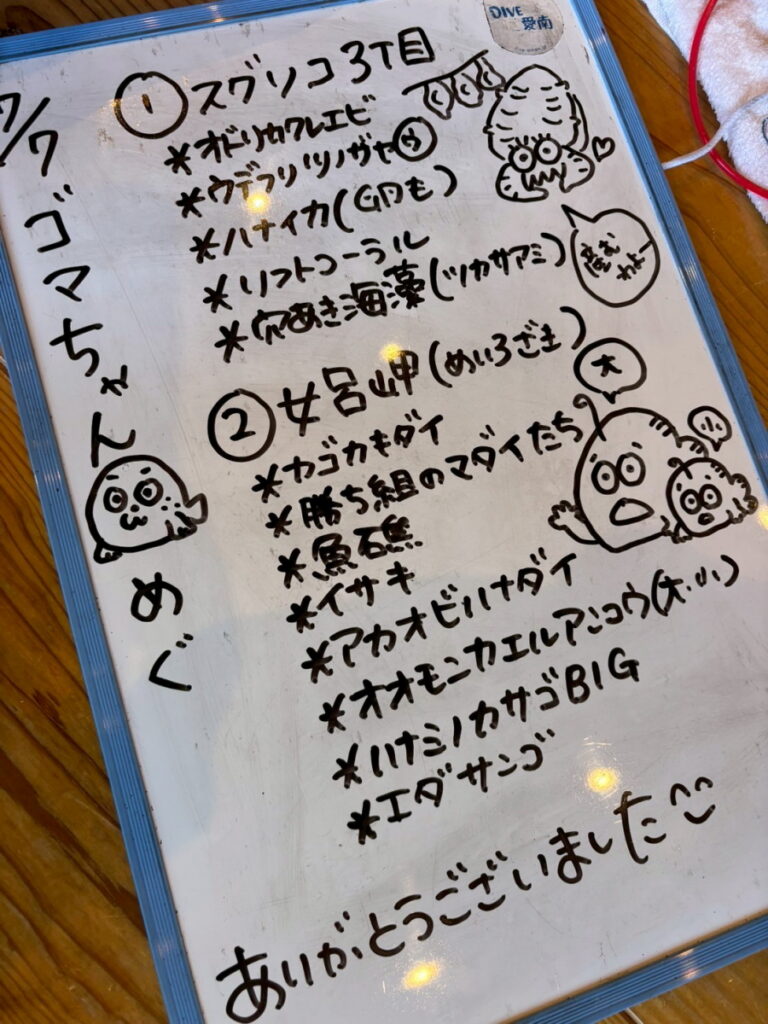 DIVE
愛南
7/7 ゴマちゃん めぐ
① スグリコ 3丁目
*オドリカクレエビ
*ウデフリツノザヤ㋒
*ハナイカ(GPも)
*ソフトコーラル
*穴あき海藻(ツカサアミ)
産む
わよー
② 女呂岬(めいろざき)
*カゴカキダイ
*勝ち組のマダイたち
*魚石焦
*イサキ
*アカオビハナダイ
*オオモンカエルアンコウ(大・小)
*ハナミノカサゴBIG
*エダサンゴ
大
小
ありがとうございました^^